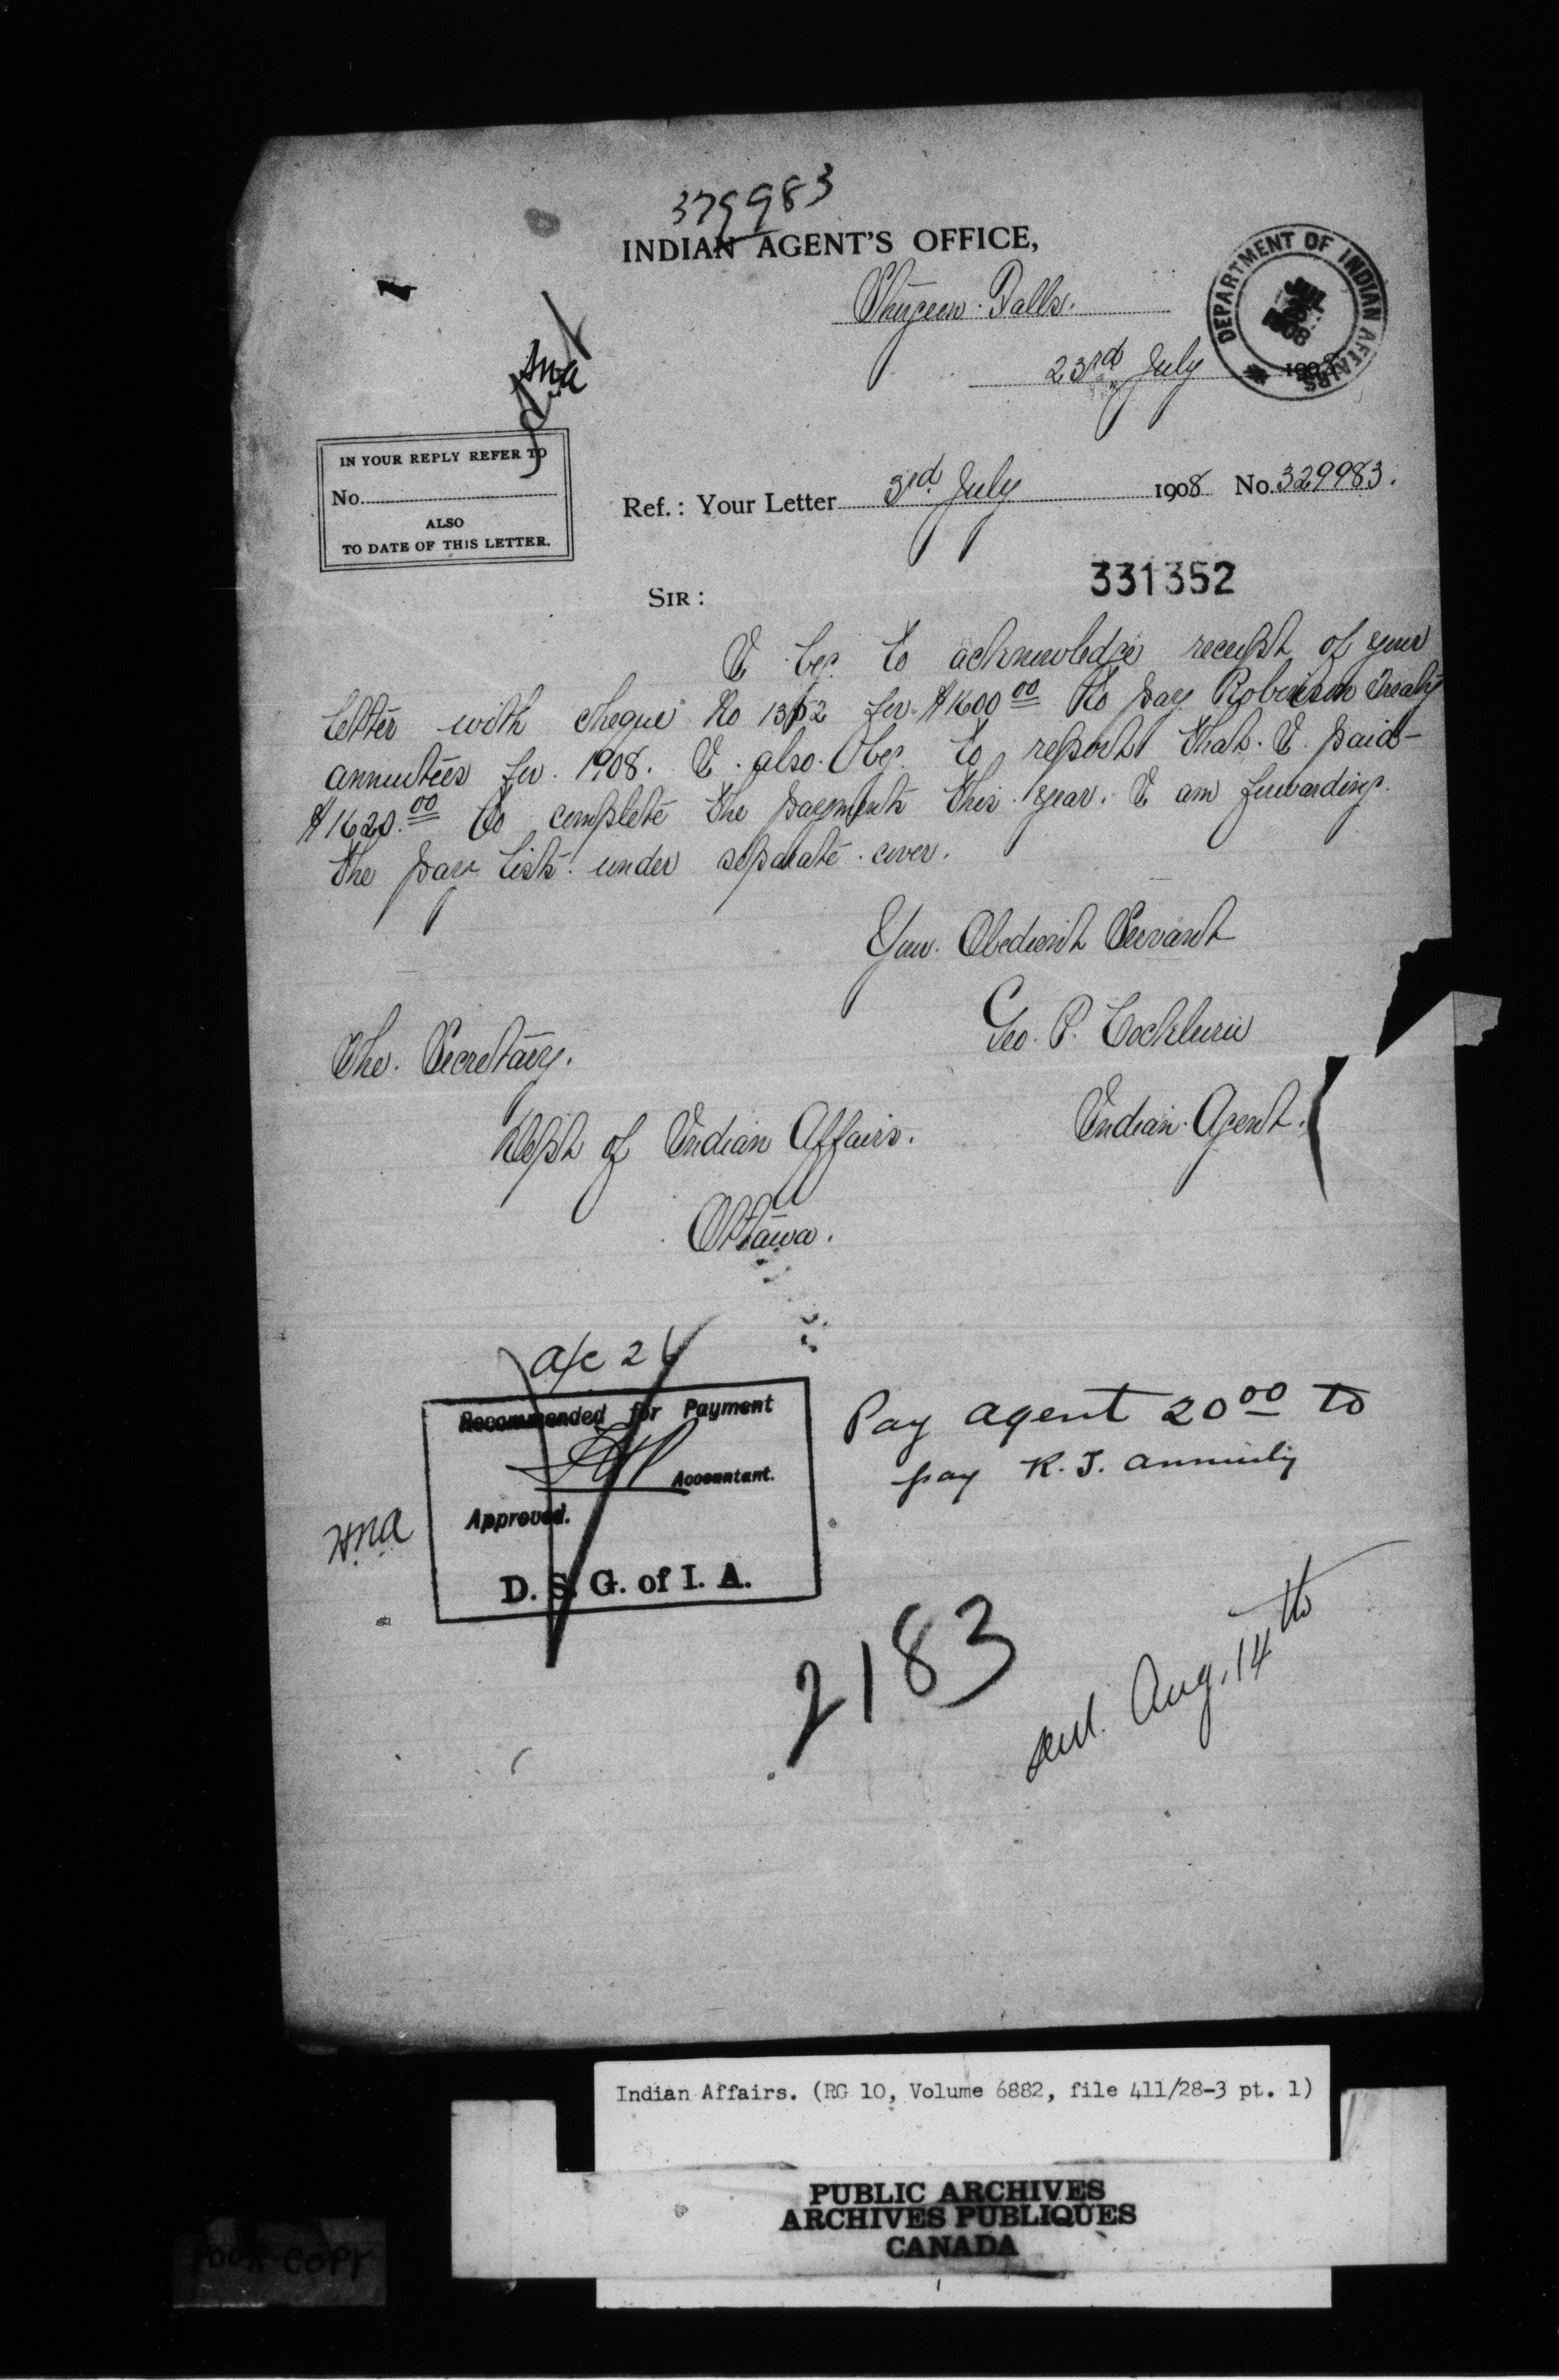 379983
INDIAN AGENT'S OFFICE,
Sturgeon Falls.
23rd July 1908
DEPARTMENT OF INDIAN AFFAIRS
JUL
1908
IN YOUR REPLY REFER TO
No.
ALSO
TO DATE OF THIS LETTER.
Ref.: Your Letter 3rd July 1908 No. 329983.
331352
SIR:
I beg to acknowledge receipt of your
letter with cheque No 1352 for $1600 00 to pay Robinson Treaty
annuities for 1908. I also beg to report that I paid
$1620.00 to complete the payments this year. I am forwarding
the pay lists under separate cover.
Your Obedient Servant
Geo. P. Cockburn
Indian Agent.
The Secretary.
Dept of Indian Affairs.
Ottawa.
a/c 26
Recommended for Payment
Accountant.
Approved.
D. S. G. of I. A.
Pay agent 20 00 to
pay R. T. annuity
2183
Aug. 14th
Indian Affairs. (RG 10, Volume 6882, file 411/28-3 pt. 1)
PUBLIC ARCHIVES
ARCHIVES PUBLIQUES
CANADA
POOR COPY